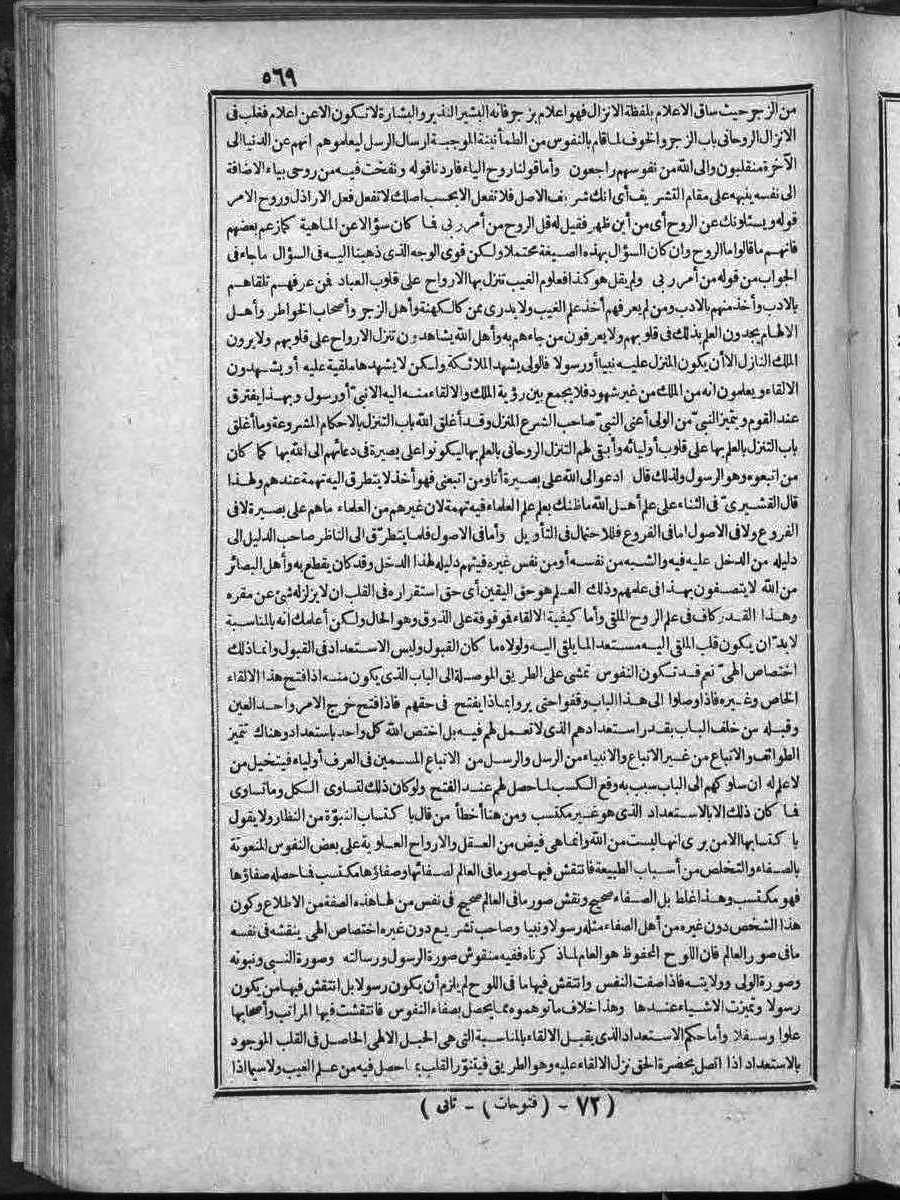 ٥٦٩
من الزجر حيث ساق الاعلام بلفظة الانزال فهو اعلام بزجر فانه البشير النذير والبشارة لا تكون الا عن اعلام فغلب فى
الانزال الروحانى باب الزجر والخوف لما قام بالنفوس من الطمأنينة الموجبة ارسال الرسل ليعلموهم انهم عن الدنيا الى
الآخرة منقلبون والى الله من نفوسهم راجعون وأما قولنا روح الياء فاردنا قوله ونفخت فيه من روحى بياء الاضافة
الى نفسه ينبهه على مقام التشريف أى انك شريف الاصل فلا تفعل الا بحسب اصلك لا تفعل فعل الاراذل وروح الامر
قوله ويسئلونك عن الروح أى من أين ظهر فقيل له قل الروح من أمر ربى فما كان سؤالا عن الماهية كما زعم بعضهم
فانهم ما قالوا ما الروح وان كان السؤال بهذه الصيغة محتملا ولكن قوى الوجه الذى ذهبنا اليه فى السؤال ما جاء فى
الجواب من قوله من أمر ربى ولم يقل هو كذا فعلوم الغيب تنزل بها الارواح على قلوب العباد فمن عرفهم تلقاهم
بالادب وأخذ منهم بالادب ومن لم يعرفهم أخذ علم الغيب ولا يدرى ممن كالكهنة وأهل الزجر وأصحاب الخواطر وأهل
الالهام يجدون العلم بذلك فى قلوبهم ولا يعرفون من جاءهم به وأهل الله يشاهدون تنزل الارواح على قلوبهم ولا يرون
الملك النازل الا أن يكون المنزل عليه نبيا أو رسولا فالولى يشهد الملائكة ولكن لا يشهدها ملقية عليه أو يشهدون
الالقاء ويعلمون انه من الملك من غير شهود فلا يجمع بين رؤية الملك والالقاء منه اليه الا نبىّ أو رسول وبهذا يفترق
عند القوم ويتميز النبىّ من الولى أعنى النبىّ صاحب الشرع المنزل وقد أغلق الله باب التنزل بالاحكام المشروعة وما أغلق
باب التنزل بالعلم بها على قلوب أوليائه وأبقى لهم التنزل الروحانى بالعلم بها ليكونوا على بصيرة فى دعائهم الى الله بها كما كان
من اتبعوه وهو الرسول ولذلك قال ادعو الى الله على بصيرة أنا ومن اتبعنى فهو أخذ لا يتطرق اليه تهمة عندهم ولهذا
قال القشيرىّ فى الثناء على علم أهل الله ما ظنك بعلم علم العلماء فيه تهمة لان غيرهم من العلماء ما هم على بصيرة لا فى
الفروع ولا فى الاصول اما فى الفروع فللاحتمال فى التأويل وأما فى الاصول فلما يتطرّق الى الناظر صاحب الدليل الى
دليله من الدخل عليه فيه والشبه من نفسه أو من نفس غيره فيتهم دليله لهذا الدخل وقد كان يقطع به وأهل البصائر
من الله لا يتصفون بهذا فى علمهم وذلك العلم هو حق اليقين أى حق استقراره فى القلب ان لا يزلزله شئ عن مقره
وهذا القدر كاف فى علم الروح الملقى وأما كيفية الالقاء فموقوفة على الذوق وهو الحال ولكن أعلمك انه بالمناسبة
لا بدّ ان يكون قلب الملقى اليه مستعدا لما يلقى اليه ولولاه ما كان القبول وليس الاستعداد فى القبول وانما ذلك
اختصاص الهىّ نعم قد تكون النفوس تمشى على الطريق الموصلة الى الباب الذى يكون منه اذا فتح هذا الالقاء
الخاص وغيره فاذا وصلوا الى هذا الباب وقفوا حتى يروا بماذا يفتح فى حقهم فاذا فتح خرج الامر واحد العين
وقبله من خلف الباب بقدر استعدادهم الذى لا تعمل لهم فيه بل اختص الله كل واحد باستعداد وهناك تتميز
الطوائف والاتباع من غير الاتباع والانبياء من الرسل والرسل من الاتباع المسمين فى العرف أولياء فيتخيل من
لا علم له ان سلوكهم الى الباب سبب به وقع الكسب لما حصل لهم عند الفتح ولو كان ذلك لتساوى الكل وما تساوى
فما كان ذلك الا بالاستعداد الذى هو غير مكتسب ومن هنا أخطأ من قال باكتساب النبوّة من النظار ولا يقول
باكتسابها الا من يرى انها ليست من الله وانما هى فيض من العقل والارواح العلوية على بعض النفوس المنعوتة
بالصفاء والتخلص من أسباب الطبيعة فانتقش فيها صور ما فى العالم لصفائها وصفاؤها مكتسب فما حصله صفاؤها
فهو مكتسب وهذا غلط بل الصفاء صحيح ونقش صور ما فى العالم صحيح فى نفس من لها هذه الصفة من الاطلاع وكون
هذا الشخص دون غيره من أهل الصفاء مثله رسولا ونبيا وصاحب تشريع دون غيره اختصاص الهى ينقشه فى نفسه
ما فى صور العالم فان اللوح المحفوظ هو العام لما ذكرناه ففيه منقوش صورة الرسول ورسالته وصورة النبى ونبوته
وصورة الولى وولايته فاذا صفت النفس وانتقش فيها ما فى اللوح لم يلزم أن يكون رسولا بل انتقش فيها من يكون
رسولا وتميزت الاشياء عندها وهذا خلاف ما توهموه مما يحصل بصفاء النفوس فانتقشت فيها المراتب وأصحابها
علوا وسفلا وأما حكم الاستعداد الذى يقبل الالقاء بالمناسبة التى هى الحبل الالهى الحاصل فى القلب الموجود
بالاستعداد اذا اتصل بحضرة الحق نزل الالقاء عليه وهو الطريق فيتنوّر القلب بما حصل فيه من علم الغيب ولا سيما اذا
( ٧٢ - ( فتوحات ) - ثانى )